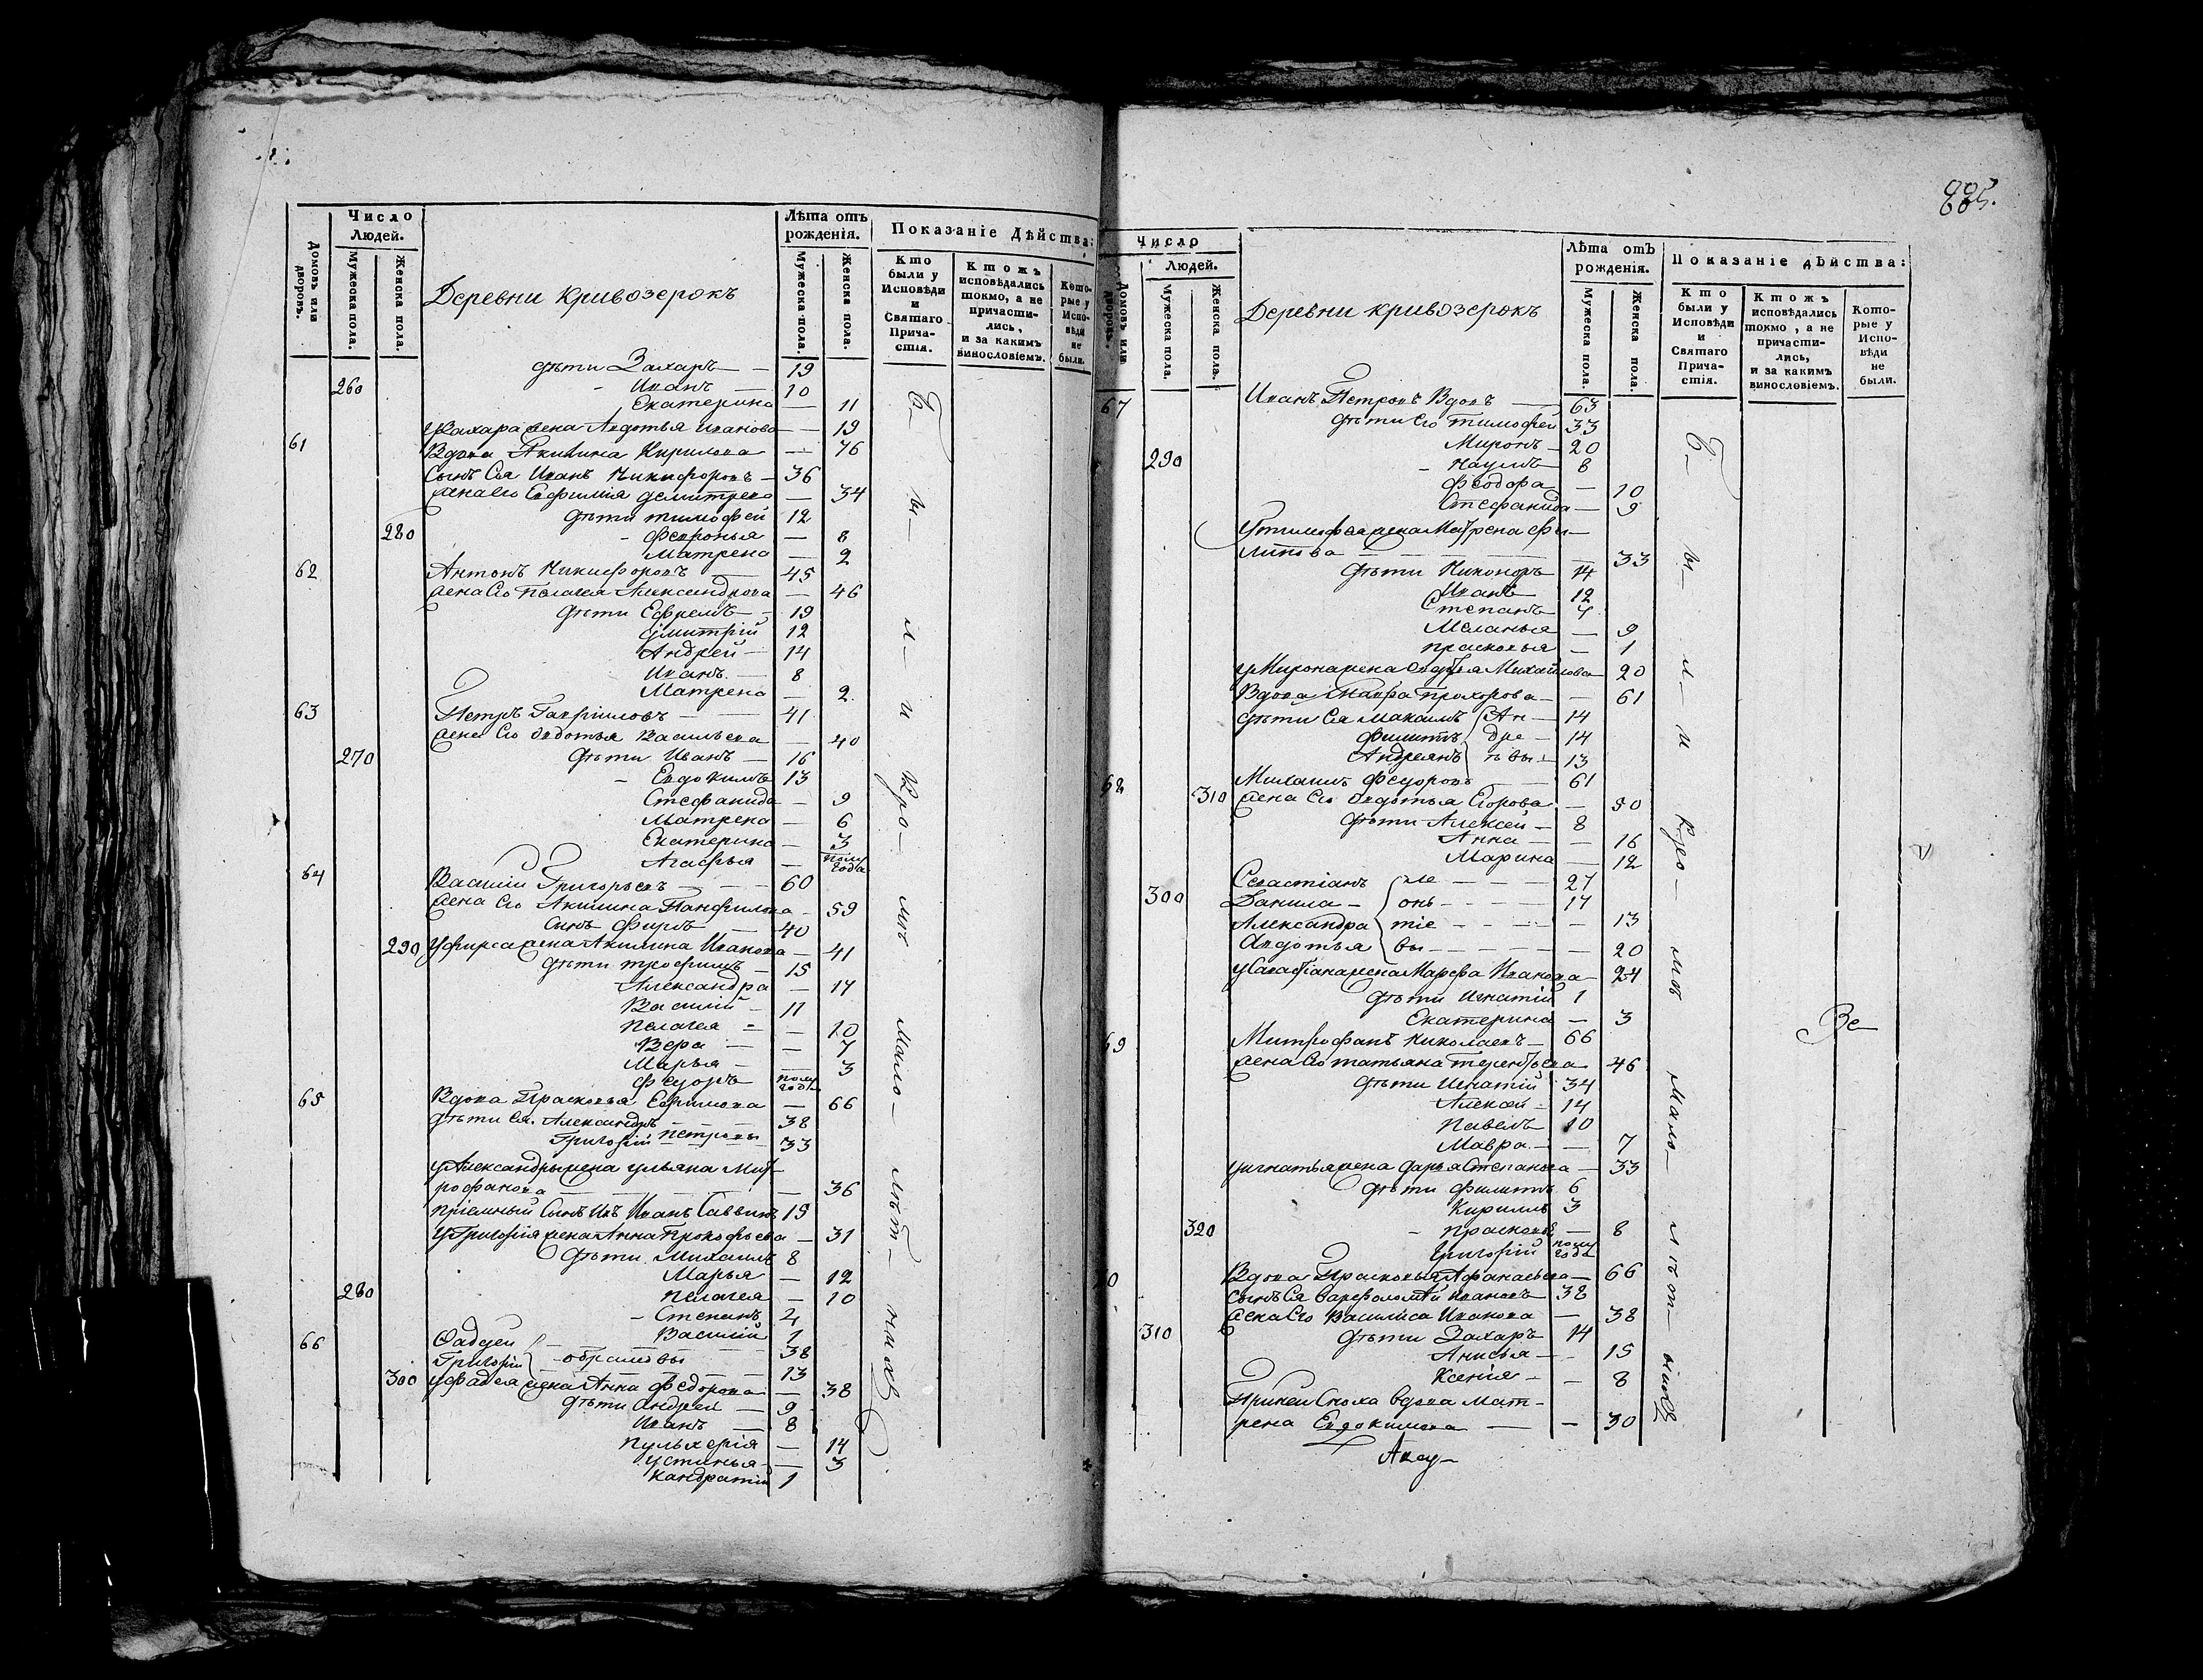 Домовъ или дворовъ.
Число Людей.
Мужеска пола.
Женска пола.
Деревни Кривозерокъ
Лѣта отъ рожденія.
Мужеска пола.
Женска пола.
Показаніе Дѣйства:
Кто были у Исповѣди и Святаго Причастія.
Ктожъ исповѣдались токмо, а не причастились, и за какимъ винословіемъ.
Которые у Исповѣди не были.
дѣти Захаръ — 19
260 Иванъ — 10
Екатерина — 11
у Захара жена Авдотья Иванова — 19
61 Вдова Акилина Кирилова — 76
Сынъ Ея Иванъ Никифоровъ — 36
жена Его Евфимія Демитрева — 34
дѣти тимофей 12
280 Февронья — 8
Матрена — 2
62 Антонъ Никифоровъ — 45
жена Его Пелагея Александрова — 46
дѣти Ефремъ — 19
Димитрій 12
Андрей — 14
Иванъ — 8
Матрена — 2
63 Петръ Гавриловъ — 41
жена Его Овдотья Васильева — 40
270 дѣти Иванъ — 16
Евдокимъ 13
Стефанида — 9
Матрена — 6
Екатерина — 3
Агафья — полугода
64 Василій Григорьевъ — 60
жена Его Акилина Панфилова — 59
Сынъ Фирсъ — 40
290 у Фирса жена Акилина Иванова — 41
дѣти трофимъ — 15
Александра — 17
Василій — 11
Пелагея — 10
Вера — 7
Марья — 3
Федоръ полугода
65 Вдова Прасковья Ефимова — 66
дѣти Ея Александръ — 38
Григорій Петровы 33
у Александры жена ульяна Мит-
рофанова — 36
пріемный Сынъ Ихъ Иванъ Саввинъ 15
у Григорія жена Анна Прокофьева — 31
дѣти Михаилъ 8
Марья — 12
280 Пелагея — 10
Степанъ 4
Василій 1
66 Фадей — 38
Григорій — обрамовы 13
300 у Фадея жена Анна Федорова — 38
дѣти Андрей — 9
Иванъ — 8
Пульхерія — 14
устинья — 3
Кандратій 1
Бы-
ли
и
Кро-
мѣ
мало-
лѣт-
нихъ
885.
Число
Домовъ или дворовъ.
Людей.
Мужеска пола.
Женска пола.
Деревни Кривозерокъ
Лѣта отъ рожденія.
Мужеска пола.
Женска пола.
Показаніе дѣйства:
Кто были у Исповѣди и Святаго Причастія.
Ктожъ исповѣдались токмо, а не причастились, и за какимъ винословіемъ.
Которые у Исповѣди не были.
67 Иванъ Петровъ Вдовъ — 63
дѣти Его тимофей 33
Миронъ — 20
290 Наумъ — 8
Феодора — 10
Стефанида — 9
у тимофея жена Матрена Фи-
липова — 33
дѣти Никоноръ 14
Иванъ 12
Степанъ 7
Меланья — 9
Прасковья — 1
у Мирона жена Авдотья Михайлова — 20
Вдова Мавра Прохорова — 61
дѣти Ея Максимъ Ан — 14
Филиппъ дре — 14
Андреянъ евы — 13
68 Михаилъ Федоровъ — 61
310 жена Его Овдотья Егорова — 50
дѣти Алексей — 8
Анна — 16
Марина — 12
Севастіанъ ле — 27
300 Данила — онь — 17
Александра тіе — 13
Авдотья вы — 20
у Севастіана жена Марфа Иванова — 24
дѣти Игнатій 1
Екатерина — 3
69 Митрофанъ Николаевъ — 66
жена Его татьяна Терентьева 46
дѣти Игнатій 34
Алексей — 14
Павелъ 10
Мавра — 7
у игнатья жена дарья Степанова — 33
дѣти Филиппъ 6
Кирилъ 3
320 Прасковья — 8
Григорій полугода
70 Вдова Прасковья Афанасьева — 66
Сынъ Ея Варфоломей Ивановъ 38
жена Его Василиса Иванова — 38
310 дѣти Захаръ 14
Анисья — 15
Ксенія — 8
При ней Сноха вдова Мат-
рена Евдокимова — 30
Авду-
Бы-
ли
и
Кро-
мѣ
мало-
лѣт-
нихъ
Ве-